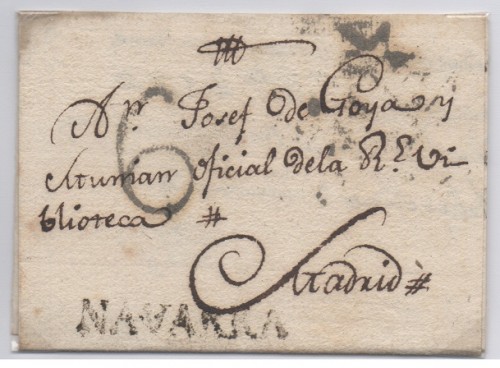 A Dn. Josef de Goya y
Munian oficial dela Rl. Vi
blioteca #
Madrid #
6
NAVARRA